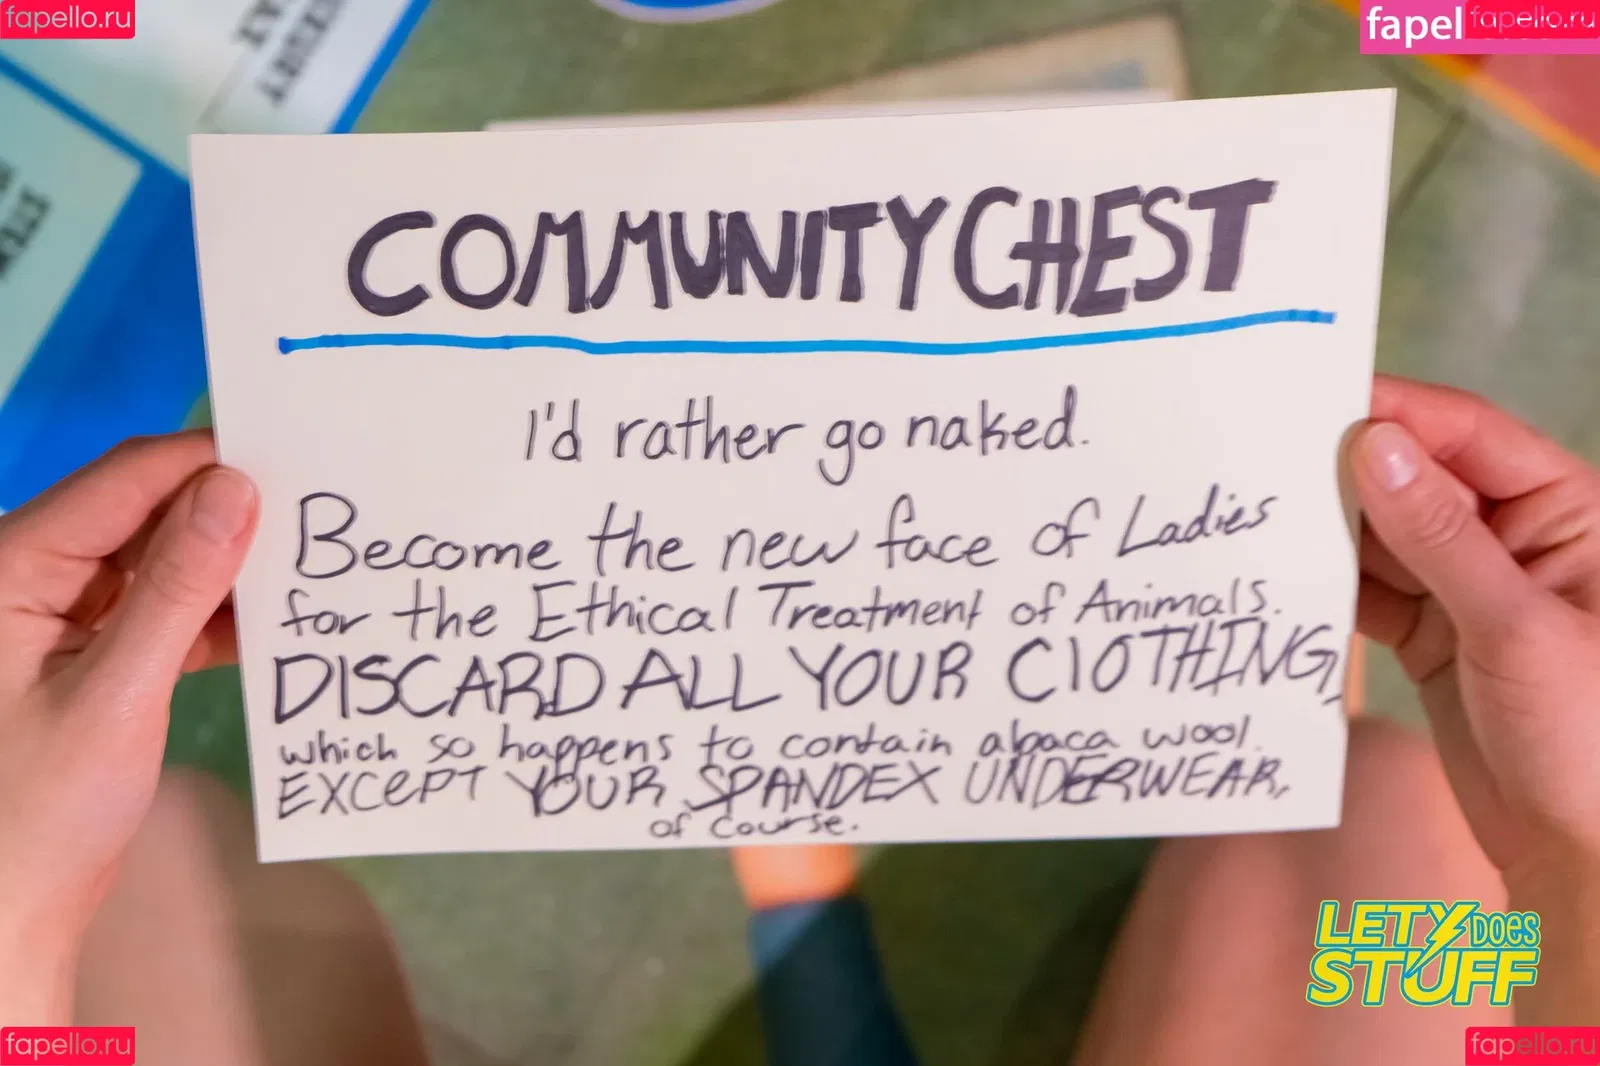 fapello.ru
fapel
fapello.ru
COMMUNITY CHEST
I'd rather go naked.
Become the new face of Ladies
for the Ethical Treatment of Animals.
DISCARD ALL YOUR ClOTHING,
which so happens to contain alpaca wool.
EXCePT YOUR SPANDEX UNDERWEAR,
of course.
LETY DOES
STUFF
fapello.ru
fapello.ru